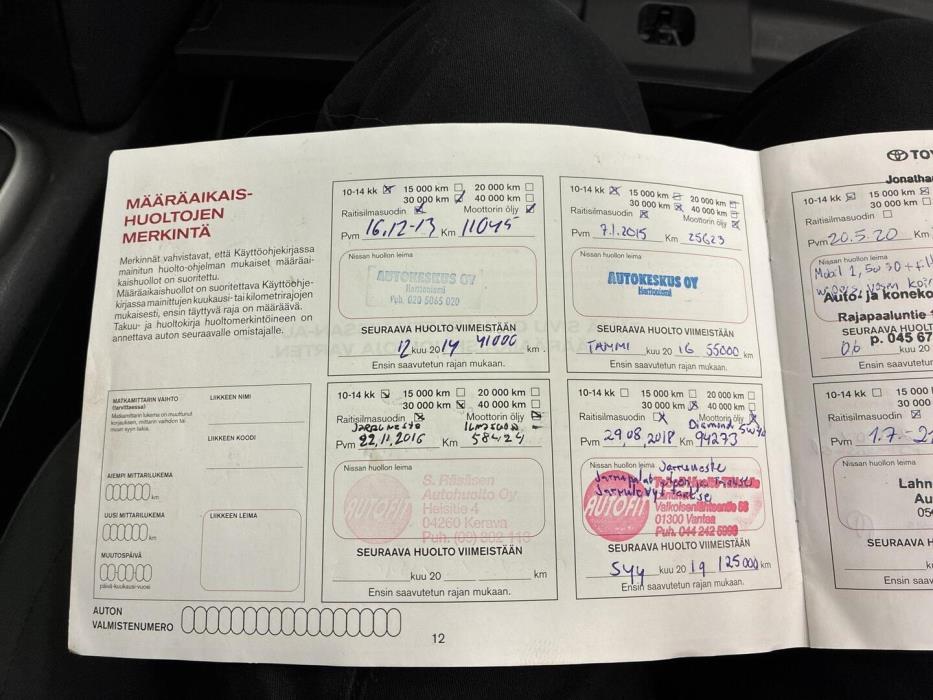 MÄÄRÄAIKAIS-
HUOLTOJEN
MERKINTÄ
Merkinnät vahvistavat, että Käyttöohjekirjassa
mainitun huolto-ohjelman mukaiset määräai-
kaishuollot on suoritettu.
Määräaikaishuollot on suoritettava Käyttöohje-
kirjassa mainittujen kuukausi- tai kilometrirajojen
mukaisesti, ensin täyttyvä raja on määräävä.
Takuu- ja huoltokirja huoltomerkintöineen on
annettava auton seuraavalle omistajalle.
MATKAMITTARIN VAIHTO
(tarvittaessa)
Matkamittarin lukema on muuttunut
korjauksen, mittarin vaihdon tai
muun syyn takia.
LIIKKEEN NIMI
LIIKKEEN KOODI
AIEMPI MITTARILUKEMA
km
UUSI MITTARILUKEMA
km
LIIKKEEN LEIMA
MUUTOSPÄIVÄ
päivä-kuukausi-vuosi
AUTON
VALMISTENUMERO
10-14 kk 15 000 km 20 000 km
30 000 km 40 000 km
Raitisilmasuodin Moottorin öljy
Pvm 16.12-13 Km 11045
Nissan huollon leima
AUTOKESKUS OY
Puh. 020 5065 020
SEURAAVA HUOLTO VIIMEISTÄÄN
12 kuu 2014 41000 km
Ensin saavutetun rajan mukaan.
10-14 kk 15 000 km 20 000 km
30 000 km 40 000 km
Raitisilmasuodin Moottorin öljy
Pvm 7.1.2015 Km 25623
Nissan huollon leima
AUTOKESKUS OY
SEURAAVA HUOLTO VIIMEISTÄÄN
TAMMI kuu 20 16 55000 km
Ensin saavutetun rajan mukaan.
10-14 kk 15 000 km 20 000 km
30 000 km 40 000 km
Raitisilmasuodin Moottorin öljy
JARRUNESTE
Pvm 22.11.2016 Km 58424
Nissan huollon leima
AUTOFIT
S. Räsäsen
Autohuolto Oy
Heisitie 4
04260 Kerava
SEURAAVA HUOLTO VIIMEISTÄÄN
kuu 20 km
Ensin saavutetun rajan mukaan.
10-14 kk 15 000 km 20 000 km
30 000 km 40 000 km
Raitisilmasuodin Moottorin öljy
Diamond
Pvm 29.08.2018 Km 94273
Nissan huollon leima
Jarruneste
AUTOFIT
01300 Vantaa
Puh. 044 242 5999
SEURAAVA HUOLTO VIIMEISTÄÄN
Syy kuu 20 19 125000 km
Ensin saavutetun rajan mukaan.
12
10-14 kk 15 000 km
Raitisilmasuodin
Pvm 20.5.20 Km
Nissan huollon leima
Auto- ja koneko
Rajapaaluntie
SEURAAVA HUOLT
p. 045 67
06 kuu 20
Ensin saavut
10-14 kk 15 000
30 000
Raitisilmasuodin
Pvm 1.7.-21
Nissan huollon leima
Lahn
Au
SEURAAVA H
kuu 20
Ensin saav